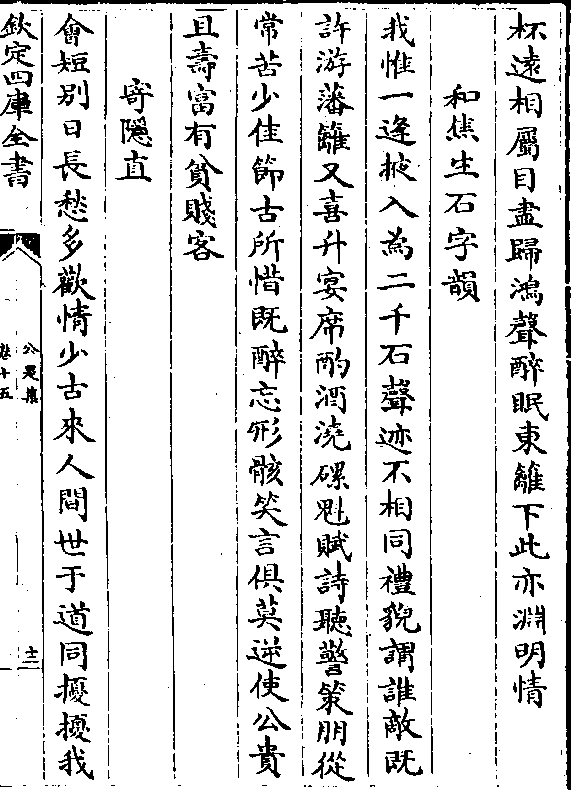 杯遠相屬目盡歸鴻聲醉眠東籬下此亦淵明情
和焦生石字韻
我惟一逢掖入為二千石聲迹不相同禮貌謂誰敵既
許游藩籬又喜升宴席酌酒澆磥魁賦詩聽警策朋從
常苦少佳節古所惜既醉忘形骸笑言俱莫逆使公貴
且壽富有貧賤客
寄隱直
會短別日長愁多歡情少古來人間世于道同擾擾我
欽定四庫全書
公是集
卷十五
十二